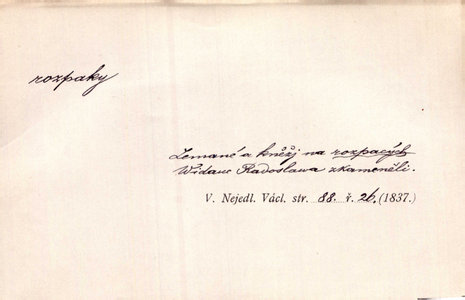 rozpaky
Zemané a kněžj na rozpacých
Widauc Radoslawa zkameněli.
V. Nejedl. Václ. str. 88. ř. 26. (1837.)